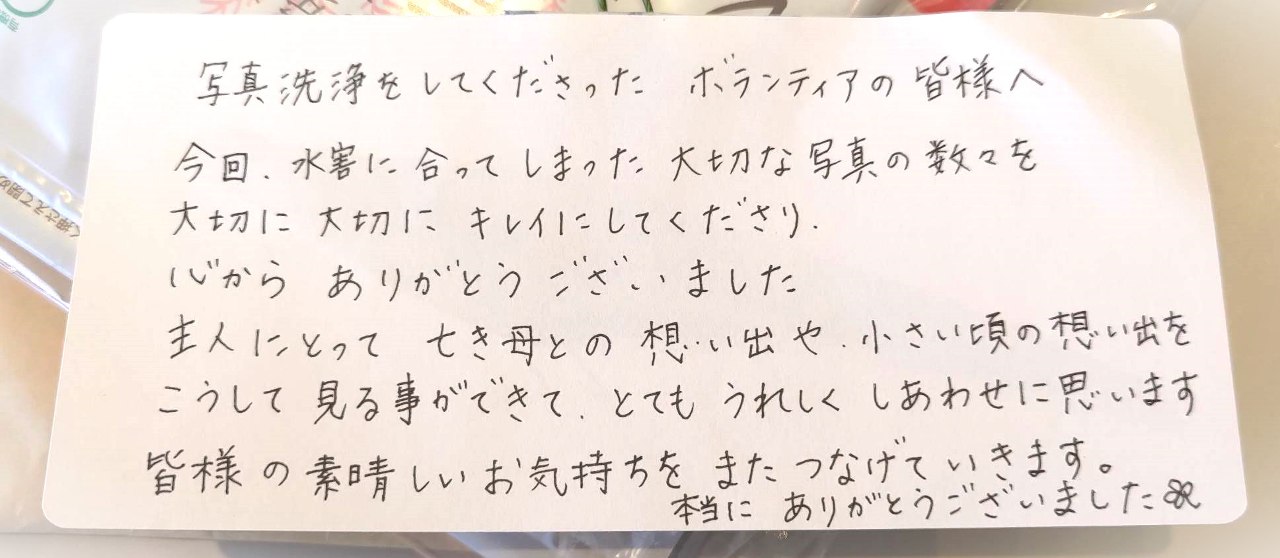 写真洗浄をしてくださった ボランティアの皆様へ
今回、水害に合ってしまった大切な写真の数々を
大切に大切に キレイにしてくださり、
心から ありがとう ございました
主人にとって 亡き母との 想い出や、小さい頃の想い出を
こうして 見る事ができて、とても うれしく しあわせに思います
皆様の素晴しいお気持ちを また つなげていきます。
本当に ありがとうございました
く押さえて閉め